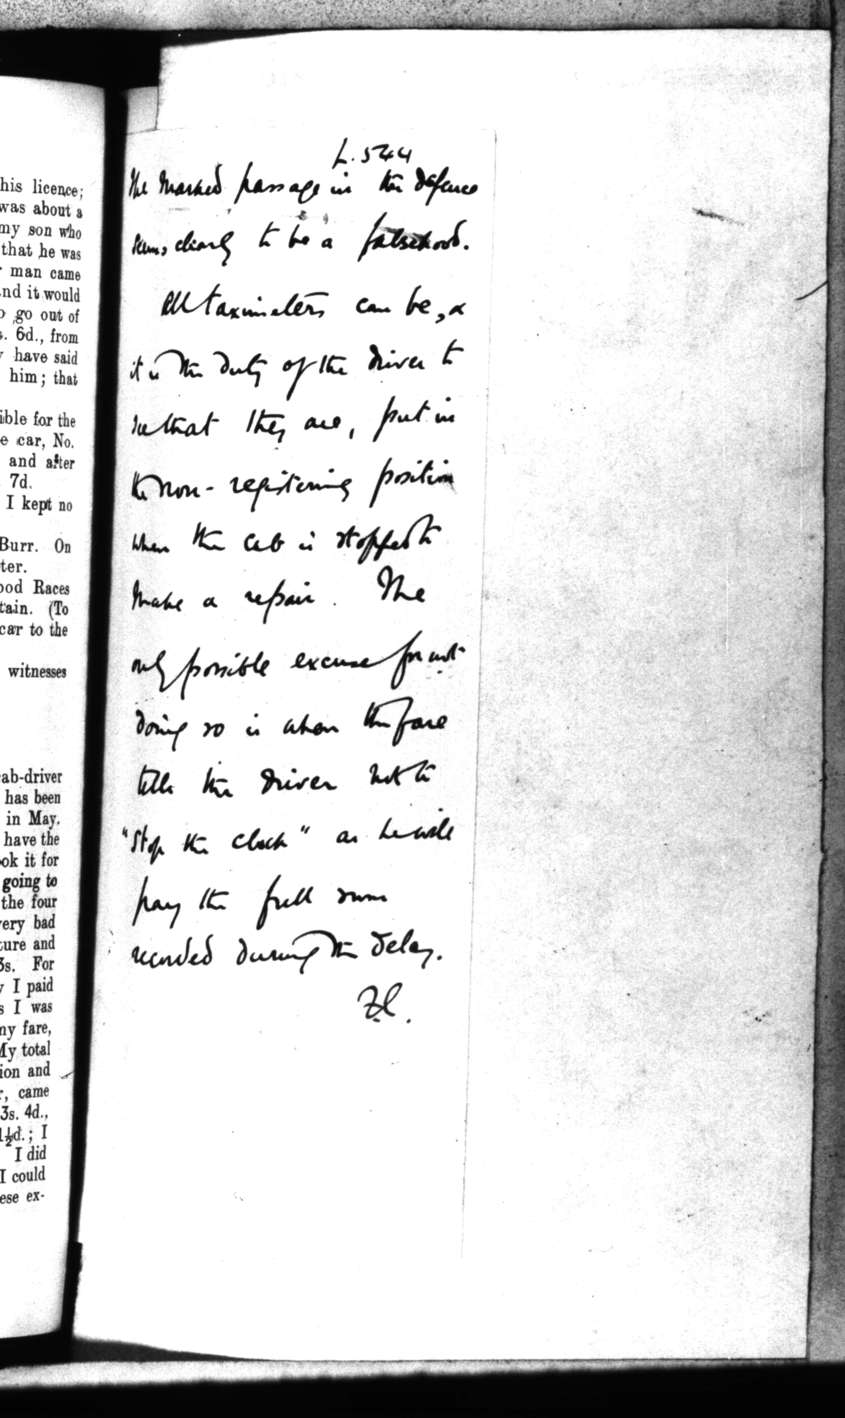 his licence;
was about a
my son who
that he was
man came
nd it would
go out of
s. 6d., from
have said
him; that
ible for the
e car, No.
and after
7d.
I kept no
Burr. On
ter.
ood Races
tain. (To
car to the
witnesses
ab-driver
has been
in May.
have the
ook it for
going to
the four
very bad
ture and
3s. For
y I paid
s I was
my fare,
My total
ion and
r, came
3s. 4d.,
1½d.; I
I did
I could
ese ex-
L. 544
The marked passage in the defence
seems clearly to be a falsehood.
All taximeters can be, &
it is the duty of the driver to
see that they are, put in
the non-registering position
when the cab is stopped to
make a repair. The
only possible excuse for not
doing so is when the fare
tells the driver not to
"stop the clock" as he will
pay the full sum
recorded during the delay.